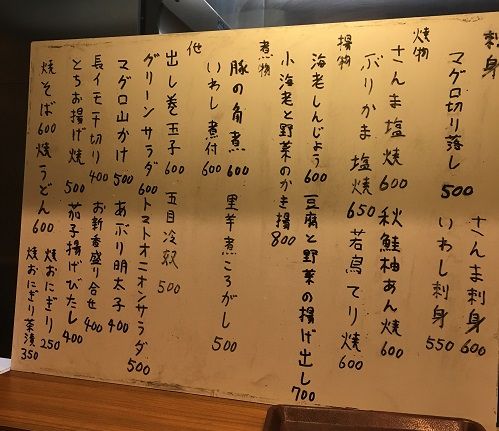 刺身
マグロ切り落し 500 さんま刺身 600
いわし刺身 550
焼物
さんま塩焼 600 秋鮭柚あん焼 600
ぶりかま塩焼 650 若鳥てり焼 600
揚物
海老しんじょう 600 豆腐と野菜の揚げ出し 700
小海老と野菜のかき揚 800
煮物
豚の角煮 600 里芋煮ころがし 500
いわし煮付 600
他
出し巻玉子 600 五目冷奴 500
グリーンサラダ 600 トマトオニオンサラダ 500
マグロ山かけ 500 あぶり明太子 400
長イモ千切り 400 お新香盛り合せ 400
とちお揚げ焼 500 茄子揚げびたし 400
焼そば 600 焼うどん 600 焼おにぎり 250
焼おにぎり茶漬 350